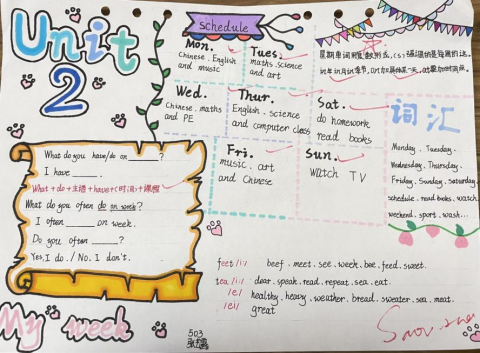 Unit 2
schedule
Mon.
Chinese, English
and music
Tues.
maths, science
and art
Wed.
Chinese, maths
and PE
Thur.
English, science
and computer class
Sat.
do homework
read books
Fri.
music, art
and Chinese
Sun.
watch TV
词汇
Monday, Tuesday,
Wednesday, Thursday,
Friday, Sunday, Saturday,
schedule, read books, watch,
weekend, sport, wash...
What do you have/do on ______?
I have ______.
What+do+主语+have+(时间)+课程
What do you often do on week?
I often ______ on week.
Do you often ______?
Yes, I do. / No. I don't.
feet /i:/ beef, meet, see, week, bee, feed, sweet.
tea /i:/ dear, speak, read, repeat, sea, eat.
/e/ healthy, heavy, weather, bread, sweater, sea, meat.
/ei/ great
My week
503